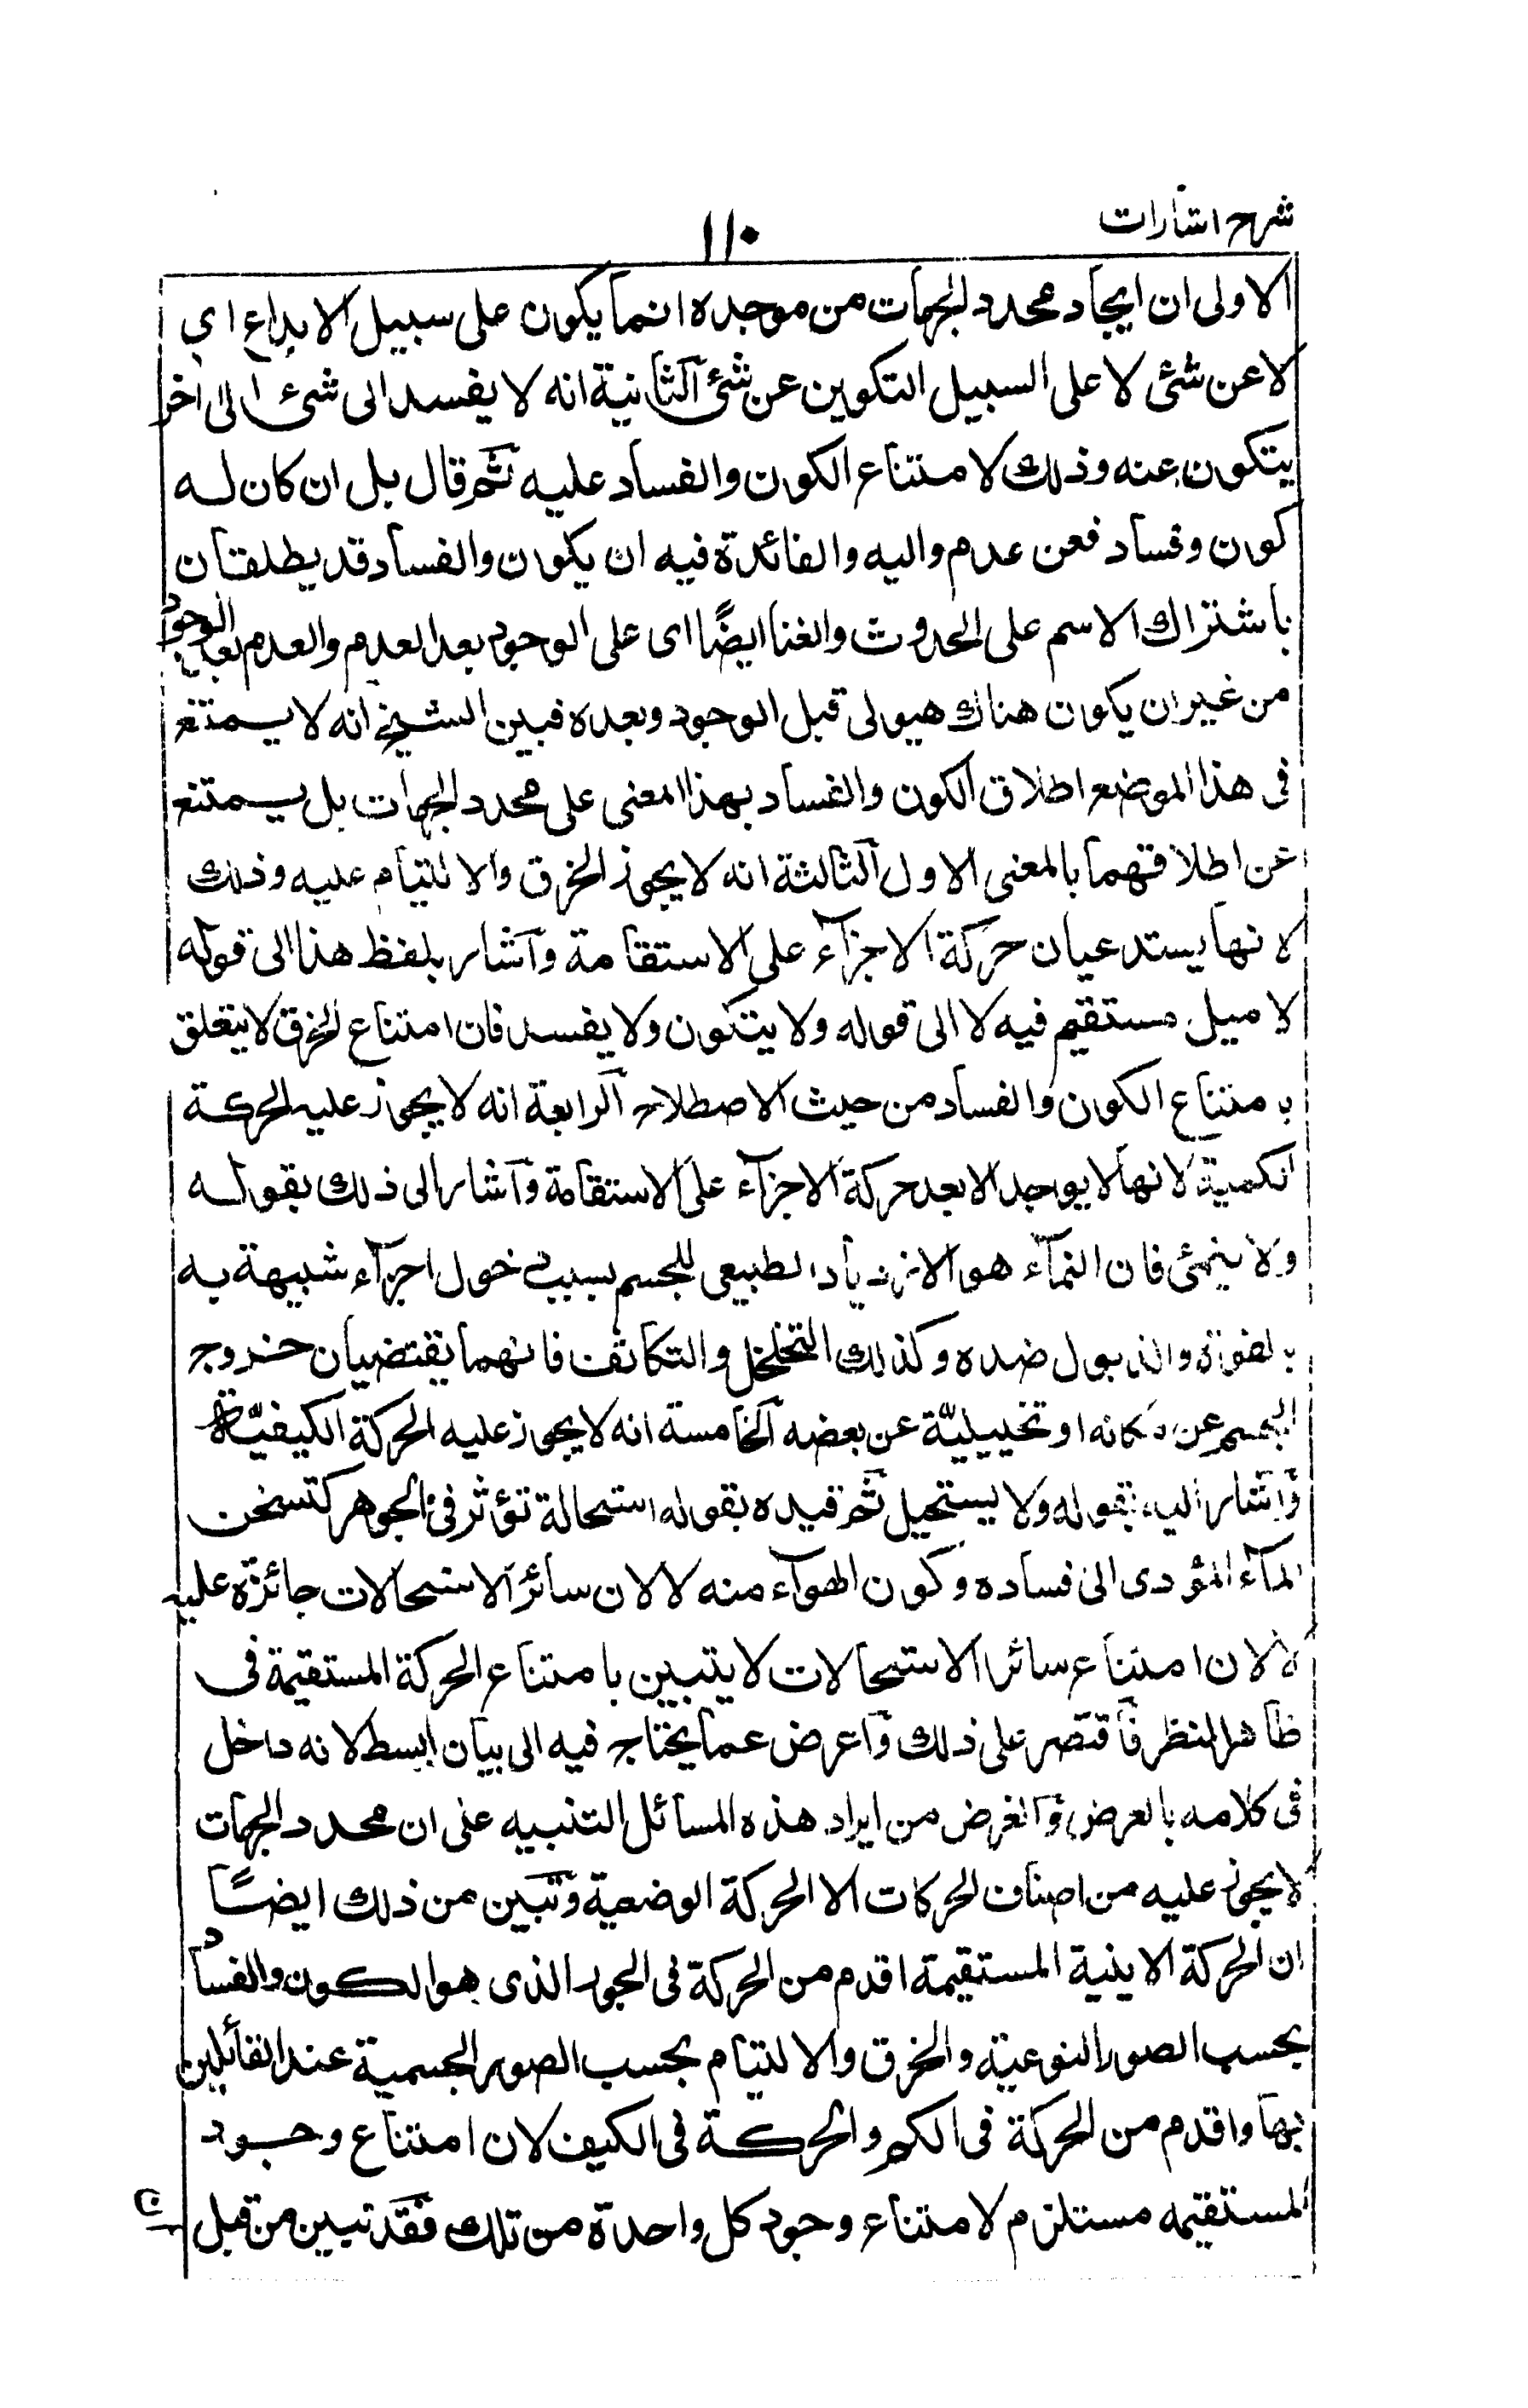 شرح اشارات
١١٠
الاولى ان ايجاد محدد الجهات من موجده انما يكون على سبيل الابداع اى
لا عن شئ لا على السبيل التكوين عن شئ الثانية انه لا يفسد الى شئ اخر
يتكون عنه وذلك لامتناع الكون والفساد عليه ثم قال بل ان كان له
كون وفساد فعن عدم واليه والفائدة فيه ان يكون والفساد قد يطلقان
باشتراك الاسم على الحدوث والفنا ايضًا اى على الوجود بعد العدم والعدم بعد الوجود
من غير ان يكون هناك هيولى قبل الوجود وبعده فبين الشيخ انه لا يمتنع
فى هذا الموضع اطلاق الكون والفساد بهذا المعنى على محدد الجهات بل يمتنع
عن اطلاقهما بالمعنى الاول الثالثة انه لا يجوز الخرق والالتيام عليه وذلك
لانها يستدعيان حركة الاجزآء على الاستقامة وآشار بلفظ هذا الى قوله
لا ميل مستقيم فيه لا الى قوله ولا يتكون ولا يفسد فان امتناع الخرق لا يتعلق
بامتناع الكون والفساد من حيث الاصطلاح الرابعة انه لا يجوز عليه الحركة
الكمية لانها لا يوجد الا بعد حركة الاجزآء على الاستقامة وآشار الى ذلك بقوله
ولا ينمئ فان النمآء هو الازدياد الطبيعى للجسم بسبب دخول اجزآء شبيهة به
بالقوة والذبول ضده وكذلك التخلخل والتكاثف فانهما يقتضيان خروج
الجسم عن مكانه او تخييليّة عن بعضه الخامسة انه لا يجوز عليه الحركة الكيفيّة
وآشار اليه بقوله ولا يستحيل ثم قيده بقوله استحالة تؤثر فى الجوهر كتسخن
المآء المؤدى الى فساده وكون الهوآء منه لا لان سائر الاستحالات جائزة عليه
لا لان امتناع سائر الاستحالات لا يتبين بامتناع الحركة المستقيمة فى
ظاهر النظر فآقتصر على ذلك وآعرض عما يحتاج فيه الى بيان ابسط لانه داخل
فى كلامه بالعرض وآلغرض من ايراد هذه المسائل التنبيه على ان محدد الجهات
لا يجوز عليه من اصناف الحركات الا الحركة الوضعية وتبين من ذلك ايضًا
ان الحركة الاينية المستقيمة اقدم من الحركة فى الجوهر الذى هو الكون والفساد
بحسب الصور النوعية والخرق والالتيام بحسب الصور الجسمية عند القائلين
بها واقدم من الحركة فى الكم والحركة فى الكيف لان امتناع وجود
المستقيمه مستلزم لامتناع وجود كل واحدة من تلك فقد تبين من قبل